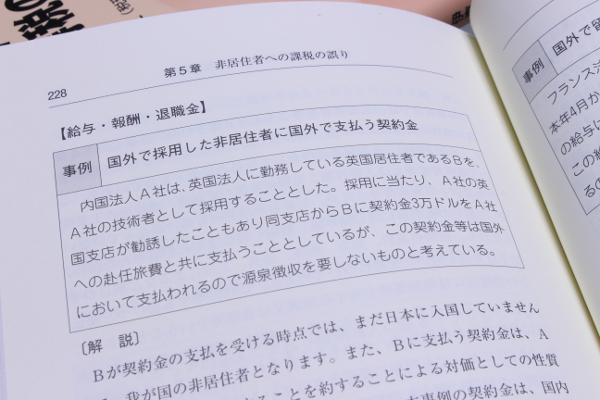 第5章 非居住者への課税の誤り
228
【給与・報酬・退職金】
事例 国外で採用した非居住者に国外で支払う契約金
内国法人A社は、英国法人に勤務している英国居住者であるBを、
A社の技術者として採用することとした。採用に当たり、A社の英
国支店が勧誘したこともあり同支店からBに契約金3万ドルをA社
への赴任旅費と共に支払うこととしているが、この契約金等は国外
において支払われるので源泉徴収を要しないものと考えている。
〔解 説〕
Bが契約金の支払を受ける時点では、まだ日本に入国していません
我が国の非居住者となります。また、Bに支払う契約金は、A
することを約することによる対価としての性質
本事例の契約金は、国内
事例 国外で留
フランス法
本年4月か
の給与に
この給